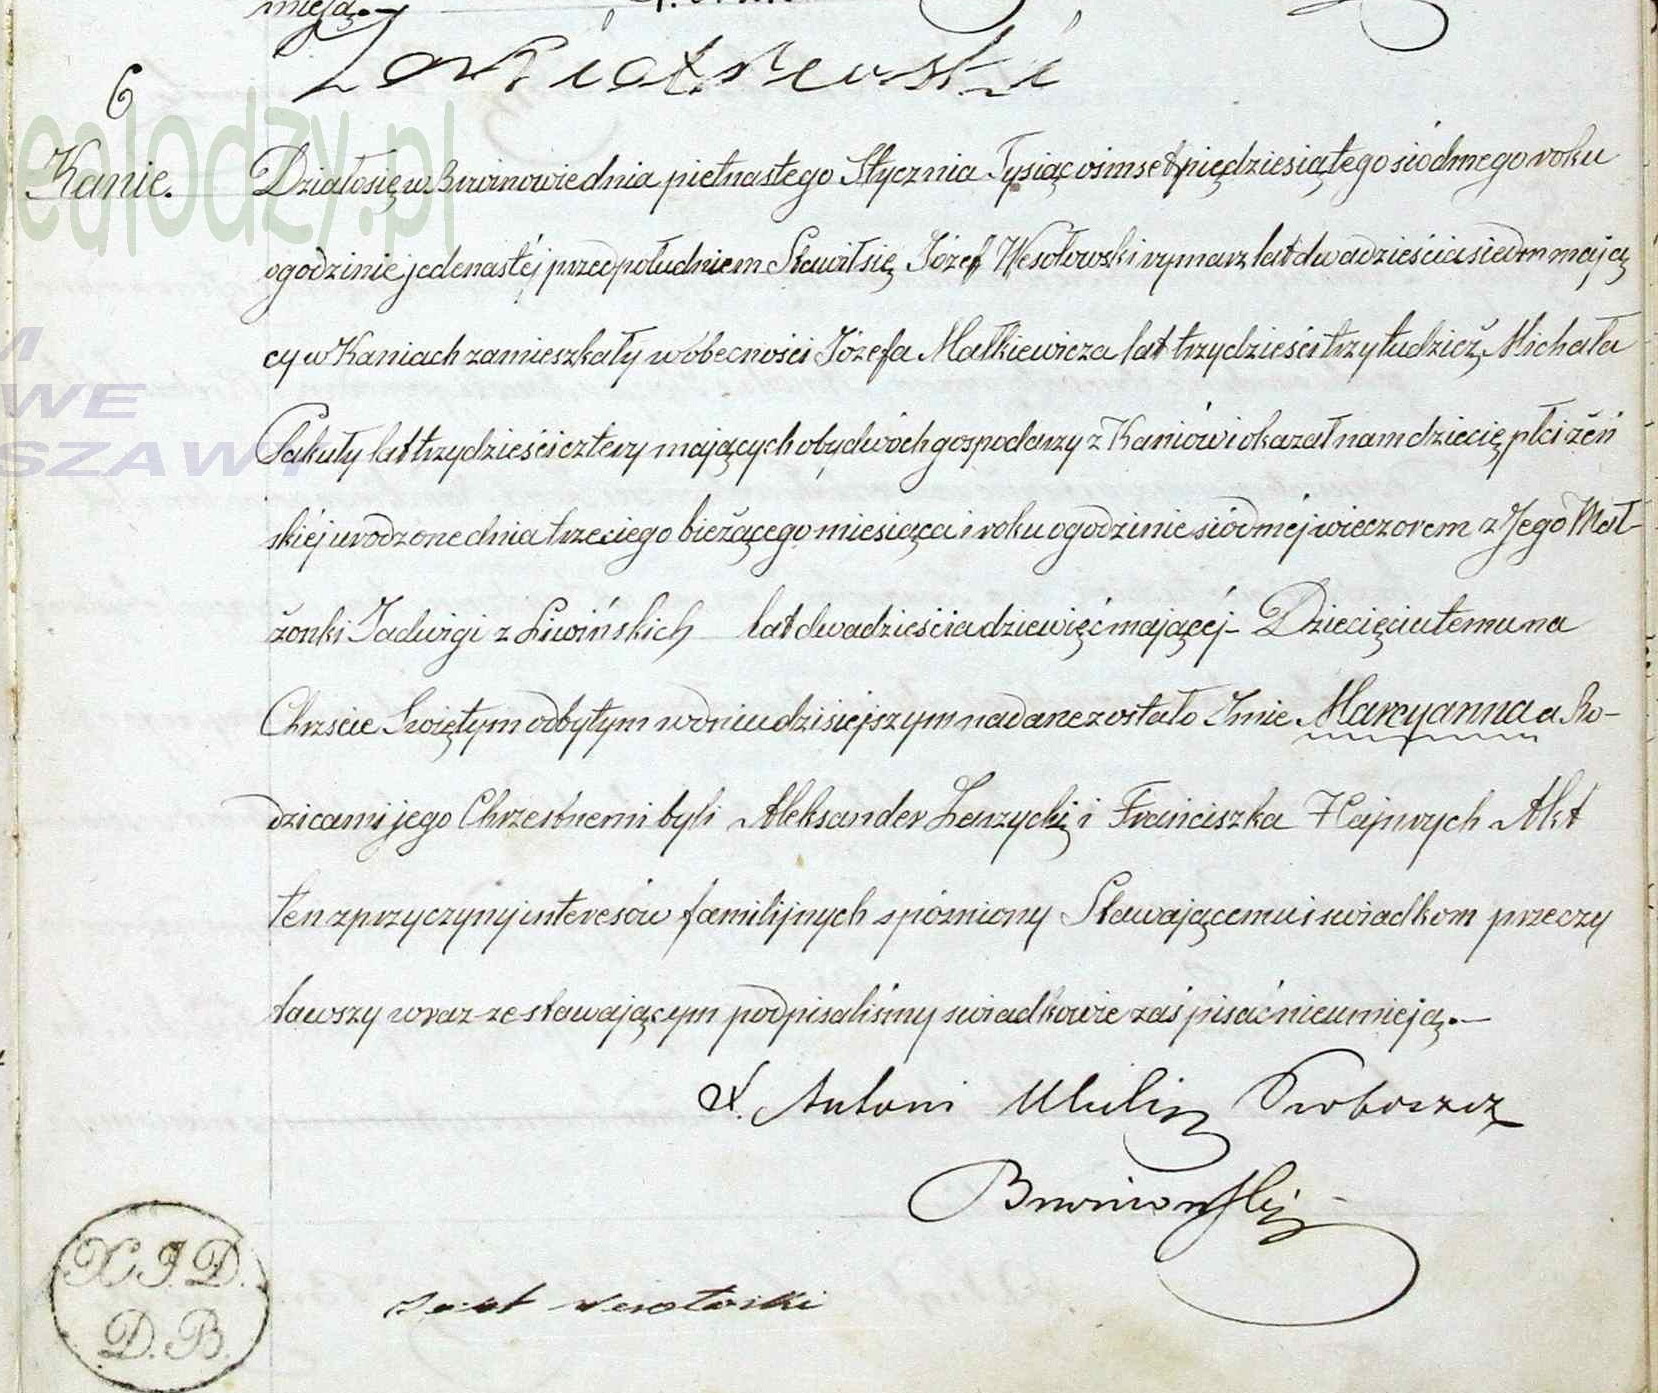 mieją.—
6
Kanie.
Działo się w Brwinowie dnia piętnastego Stycznia Tysiąc ośmset piędziesiątego siódmego roku
o godzinie jedenastéj przed południem Stawił się Józef Wesołowski rymarz lat dwadzieścia siedm mają
cy w Kaniach zamieszkały w óbecności Józefa Małkiewicza lat trzydzieści trzy tudzież Michała
Pakuły lat trzydzieści cztery mających obydwóch gospodarzy z Kaniów i okazał nam dziecię płci żeń
skiéj urodzone dnia trzeciego bieżącego miesiąca i roku o godzinie siódméj wieczorem z Jego Mał-
żonki Jadwigi z Liwińskich lat dwadzieścia dziewięć mającéj — Dziecięciu temu na
Chrzcie Świętym odbytym w dniu dzisiejszym nadane zostało Imie Marcyanna a Ro-
dzicami jego Chrzestnemi byli Aleksander Łęczycki i Franciszka Hajnrych Akt
ten z przyczyny interesów familijnych spóźniony Stawającemu i swiadkom przeczy
tawszy wraz ze stawającym podpisaliśmy swiadkowie zaś pisać nieumieją.—
X. Antoni Proboszcz
Brwinowski
Wesołoski
X J. D.
D. B.
ealodzy.pl
M
WE
SZAW